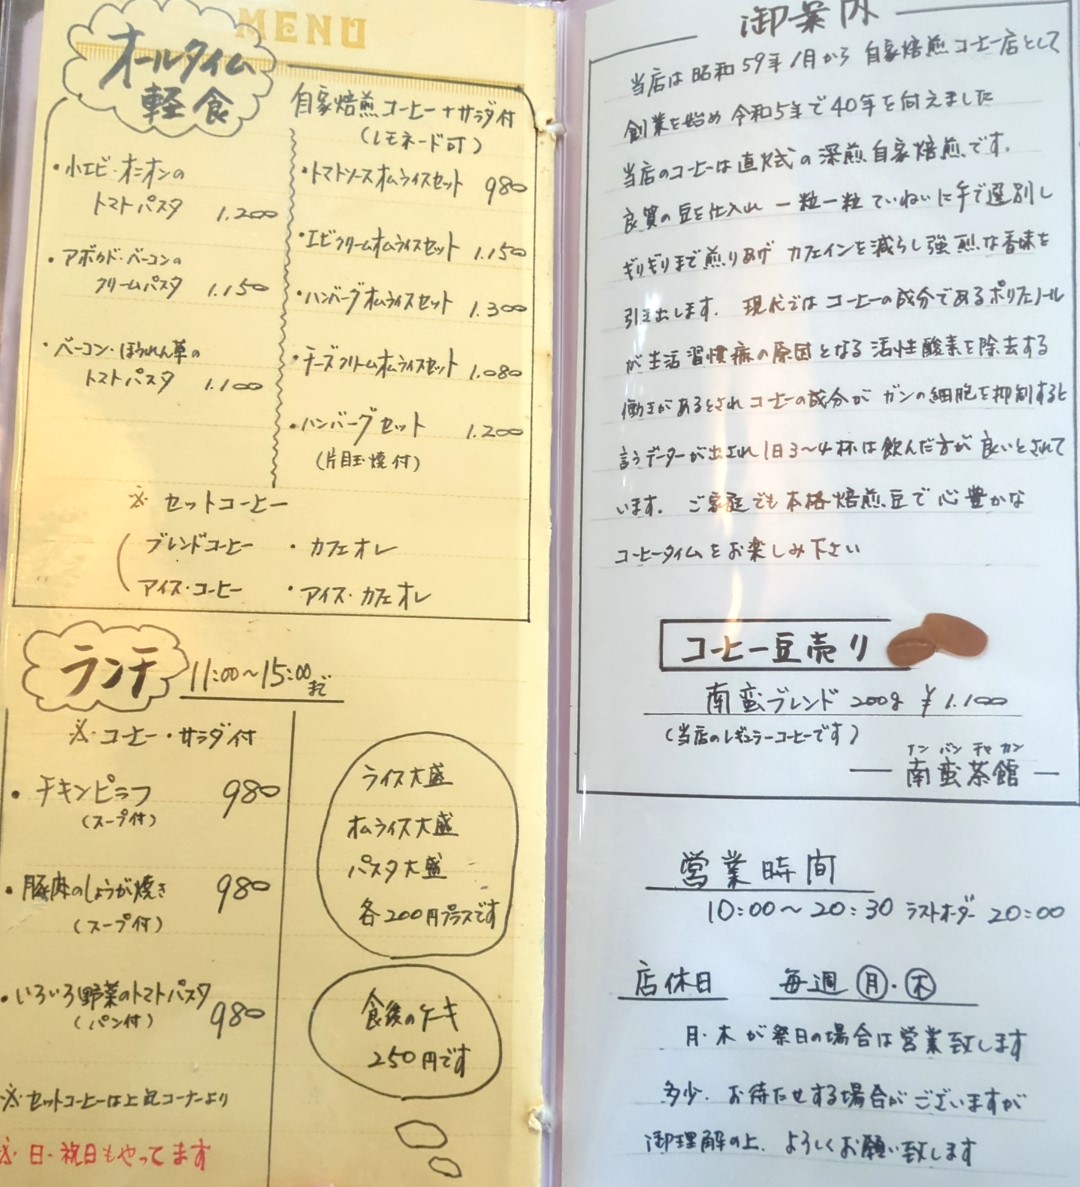 MENU
オールタイム
軽食
自家焙煎コーヒー+サラダ付
(レモネード可)
・小エビ・オニオンの
トマトパスタ 1.200
・アボカド・ベーコンの
クリームパスタ 1.150
・ベーコン・ほうれん草の
トマトパスタ 1.100
・トマトソースオムライスセット 980
・エビクリームオムライスセット 1.150
・ハンバーグオムライスセット 1.300
・チーズクリームオムライスセット 1.080
・ハンバーグセット 1.200
(片目玉焼付)
※ セットコーヒー
ブレンドコーヒー ・カフェオレ
アイス・コーヒー ・アイス・カフェオレ
ランチ 11:00〜15:00まで
※・コーヒー・サラダ付
・チキンピラフ 980
(スープ付)
・豚肉のしょうが焼き 980
(スープ付)
・いろいろ野菜のトマトパスタ
(パン付) 980
※セットコーヒーは上記コーナーより
※・日・祝日もやってます
ライス大盛
オムライス大盛
パスタ大盛
各200円プラスです
食後のケーキ
250円です
御案内
当店は昭和59年1月から自家焙煎コーヒー店として
創業を始め令和5年で40年を向えました
当店のコーヒーは直火式の深煎自家焙煎です。
良質の豆を仕入れ 一粒一粒ていねいに手で選別し
ギリギリまで煎りあげ カフェインを減らし強煎な香味を
引き出します. 現代ではコーヒーの成分であるポリフェノール
が生活習慣病の原因となる活性酸素を除去する
働きがあるとされコーヒーの成分がガンの細胞を抑制すると
言うデーターが出され1日3〜4杯は飲んだ方が良いとされて
います. ご家庭でも本格焙煎豆で心豊かな
コーヒータイムをお楽しみ下さい
コーヒー豆売り
南蛮ブレンド 200g ¥1.100
(当店のレギュラーコーヒーです)
ナンバンチャカン
― 南蛮茶館 ―
営業時間
10:00〜20:30 ラストオーダー 20:00
店休日 毎週 月・木
月・木が祭日の場合は営業致します
多少、お待たせする場合がございますが
御理解の上、よろしくお願い致します